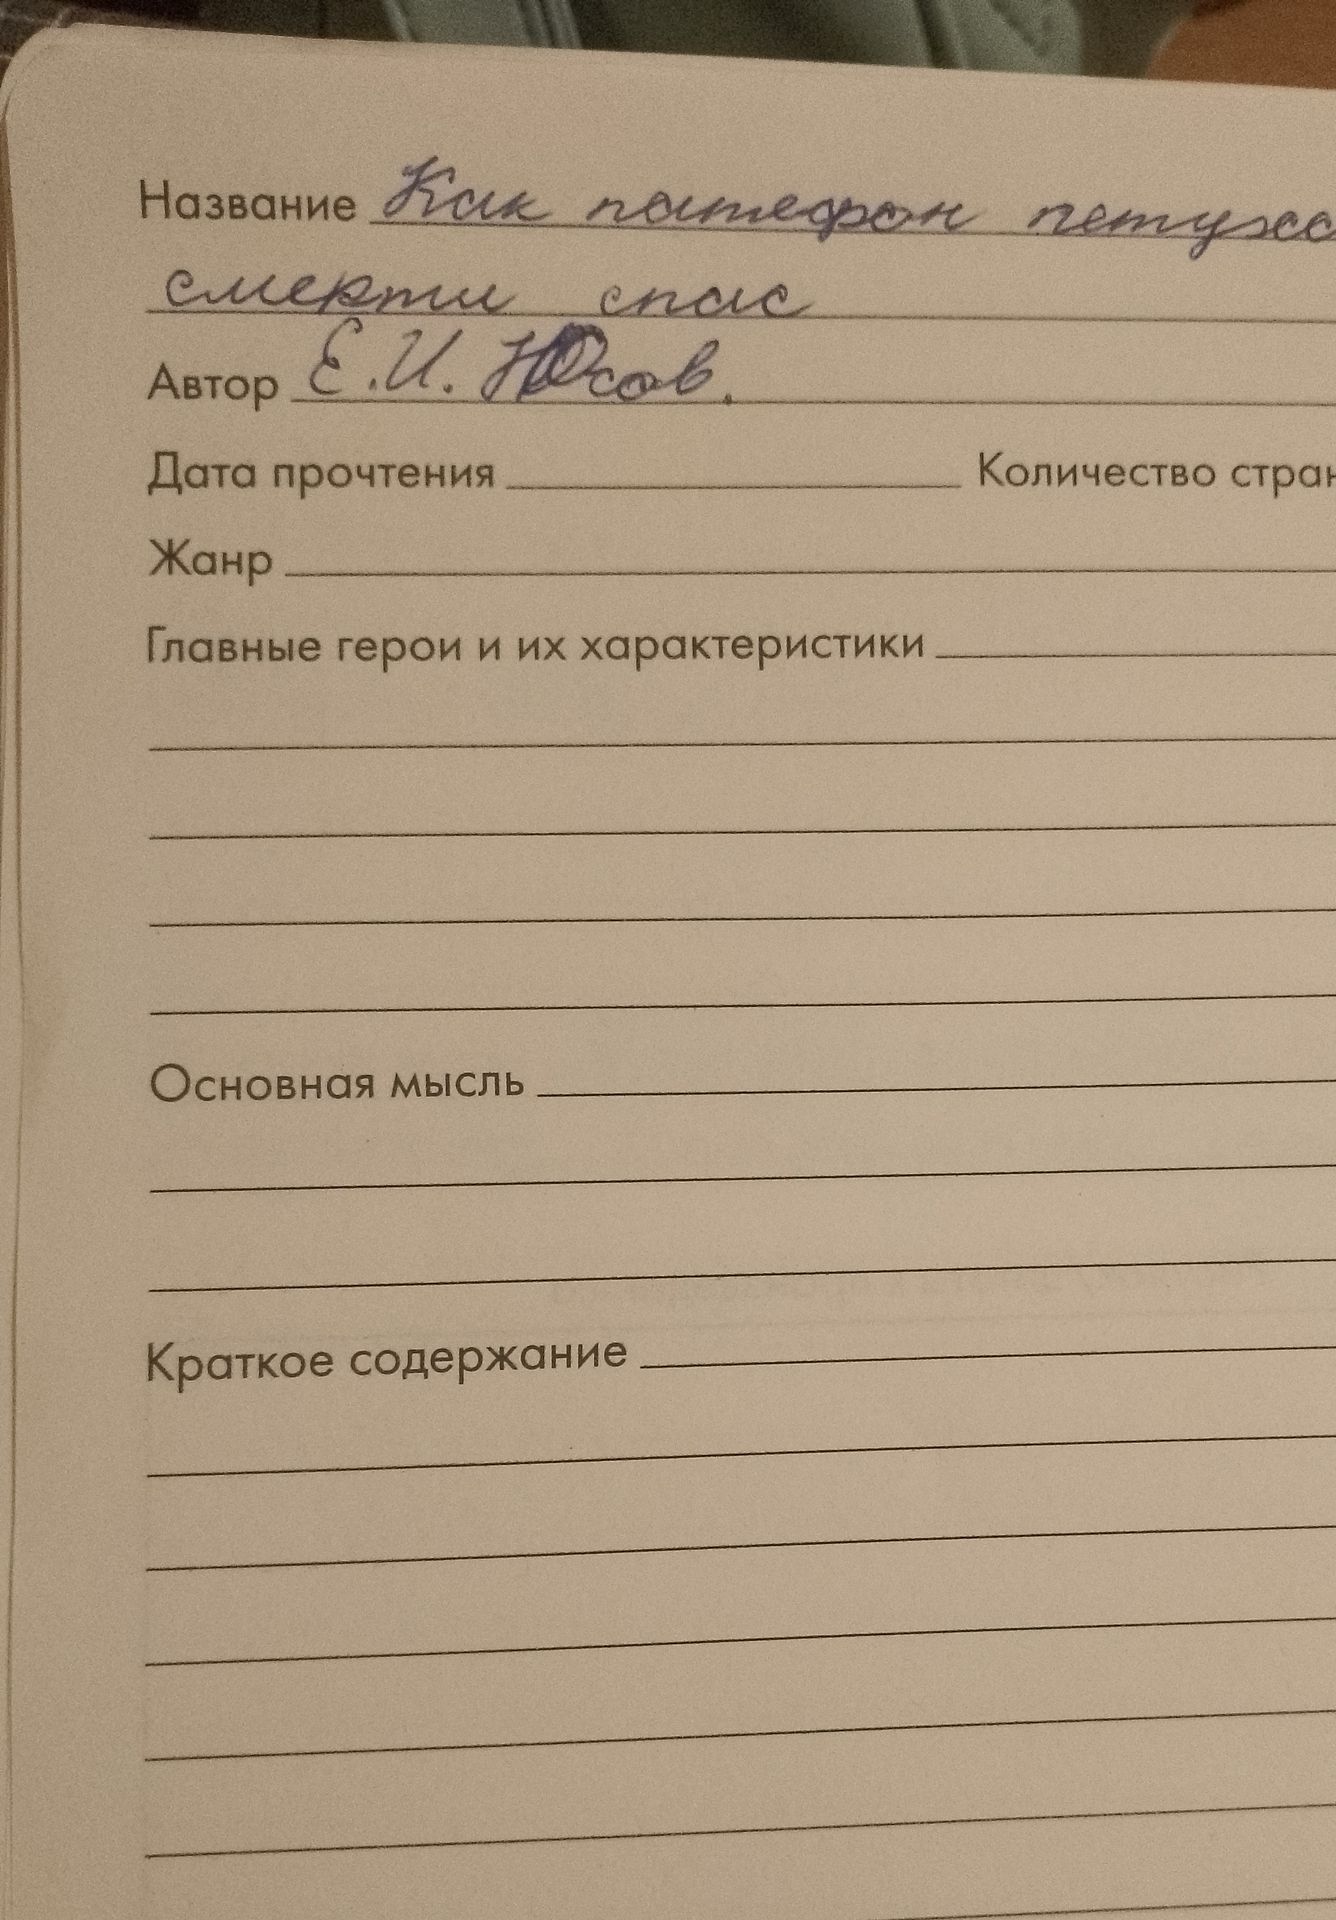 Название Как патефон петуха
смерти спас
Автор Е.И. Юсов.
Дата прочтения Количество стран
Жанр
Главные герои и их характеристики
Основная мысль
Краткое содержание